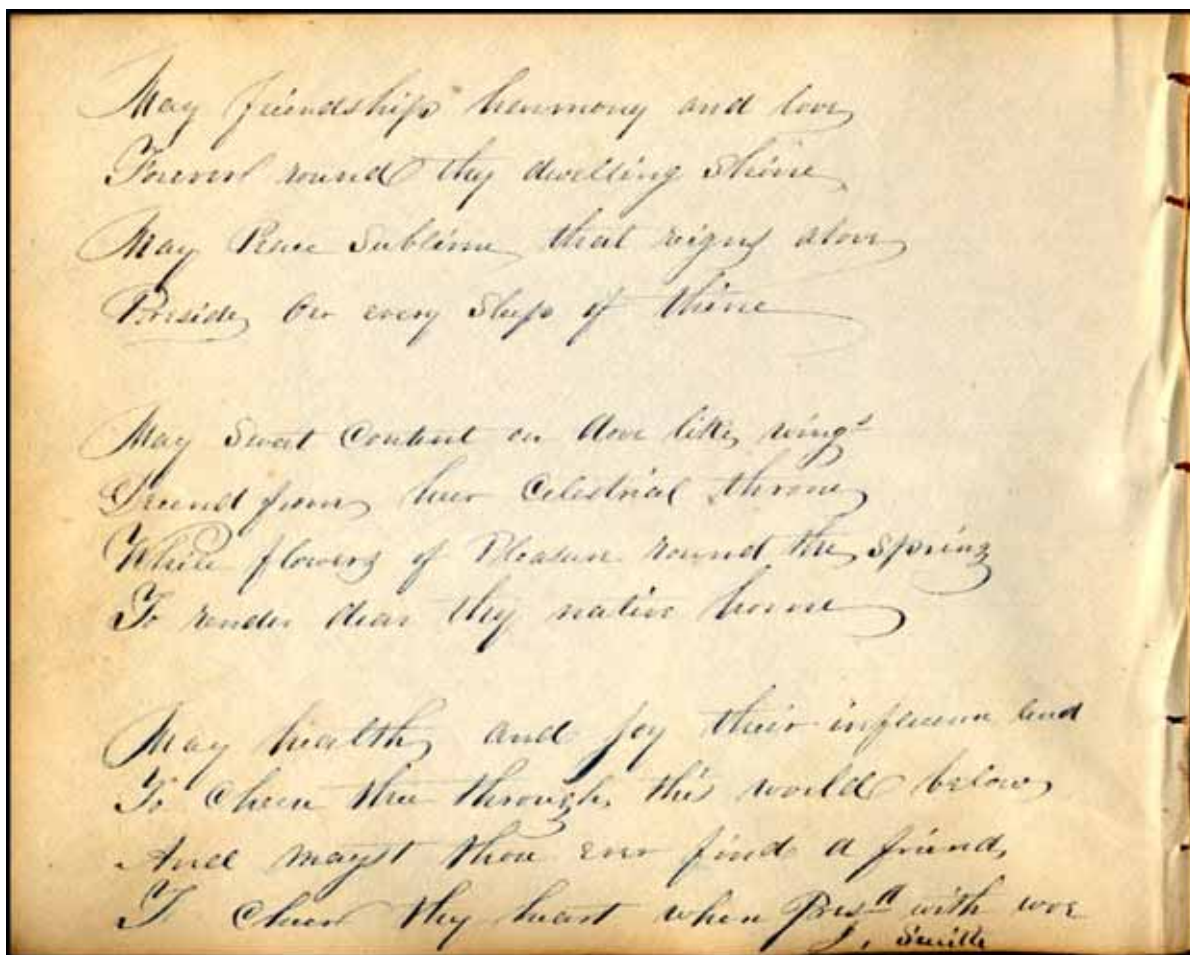 May friendship harmony and love
Forever round thy dwelling shine
May Peace Sublime that reigns above
Preside Oer every Step of thine
May Sweet Content on dove like wing's
Decend from her Celestrial throne
While flowers of Pleasure round the spring
To render dear thy native home
May health and joy their influence lend
To Cheer thee through this world below
And mayst thou ever find a friend
To Cheer thy heart when Pres'd with woe
J. Smith